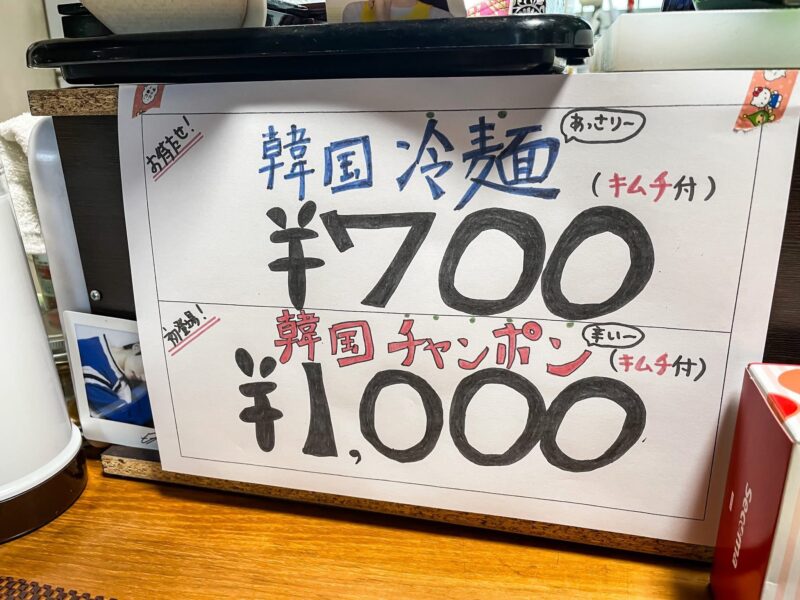 お待たせ!
韓国冷麺
あっさりー
(キムチ付)
¥700
初登場!
韓国チャンポン
辛いー
(キムチ付)
¥1,000
Secoma